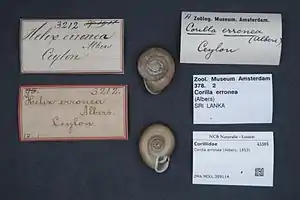 3212
Helix erronea
Albers
Ceylon
3212.
Helix erronea
Albers.
Ceylon
Zoölog. Museum. Amsterdam.
Corilla erronea
(Albers)
Ceylon
Zool. Museum Amsterdam
378. 2
Corilla erronea
(Albers)
SRI LANKA
NCB Naturalis - Leiden
Corillidae
Corilla erronea (Albers, 1853)